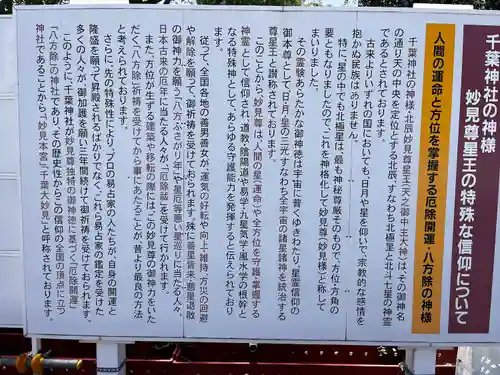 千葉神社の神様
妙見尊星王の特殊な信仰について
人間の運命と方位を掌握する厄除開運・八方除の神様
千葉神社の神様・北辰妙見尊星王(天之御中主大神)は、その御神名
の通り天の中央を定位とする北辰、すなわち北極星と北斗七星の神霊
であるとされております。
古来よりいずれの国においても、日月や星を仰いで、宗教的な感情を
抱かぬ民族はありません。
特に「星の中でも北極星は、最も神秘尊厳そのもので、方位・方角の
要ともなりましたので、これを神格化して妙見尊(妙見様)と称して
まいりました。
その霊験あらたかな御神徳は宇宙に普くゆきわたり、星霊信仰の
御本尊として「日・月・星の三光」すなわち全宇宙の諸星諸神を統治する
尊星王と讃称されております。
このことから、妙見尊は、人間の「星(運命)」や全方位を守護・掌握する
神霊として信仰され、道教・陰陽道や易学・九星気学・風水学の根幹と
なる特殊神として、あらゆる守護能力を発揮すると伝えられており
ます。
従って、全国各地の善男善女が、運気の好転や向上・維持、方災の回避
や解除を願って、御祈祷を受けておられます。殊に善星皆来・悪星退散
の御神力を願う「八方ふさがり年」や星厄等悪い星巡りに当たる人々、
日本古来の厄年に当たる人々が、「厄除祓」を受けて行かれます。
また、方位が生ずる建築や移転の際には、この妙見尊の御神力をいた
だく「八方除」祈祷を受けてから事にあたることが、昔より最良の方法
と考えられております。
さらに、先の特殊性により、プロの易占家の人たちが、自身の開運と
隆盛を願って昇殿されるばかりでなく、これら易占家の鑑定を受けた
多くの人々が、御加護を願い、年間続けて御祈祷を受けておられます。
このように、千葉神社が妙見尊独特の御神徳に基づく「厄除開運」
「八方除」の神社であり、その歴史性からこの信仰の全国の頂点に立つ
神社であることから、「妙見本宮」「千葉大妙見」と呼称されております。